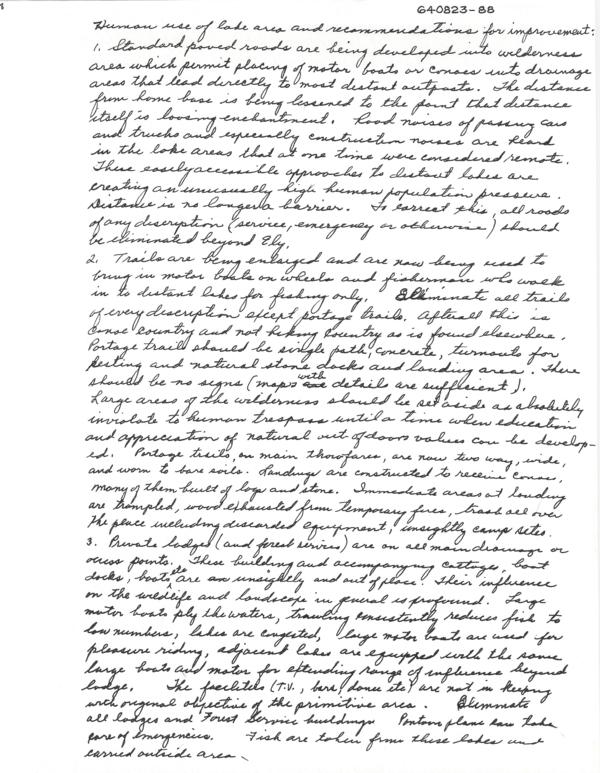 640823-88
Human use of lake area and recommendations for improvement:
1. Standard paved roads are being developed into wilderness
area which permit placing of motor boats or canoes into drainage
areas that lead directly to most distant outposts. The distance
from home base is being lessened to the point that distance
itself is loosing enchantment. Road noises of passing cars
and trucks and especially construction noises are heard
in the lake areas that at one time were considered remote.
These easily accessible approaches to distant lakes are
creating an unusually high human population pressure.
Distance is no longer a barrier. To correct this, all roads
of any discription (service, emergency or otherwise) should
be eliminated beyond Ely.
2. Trails are being enlarged and are now being used to
bring in motor boats on wheels and fisherman who walk
in to distant lakes for fishing only. Eliminate all trails
of every discription except portage trails. Afterall this is
canoe country and not hiking country as is found elsewhere.
Portage trails should be single path, concrete, turnouts for
resting and natural stone docks and landing area. There
should be no signs (maps with details are sufficient).
Large areas of the wilderness should be set aside as absolutely
inviolate to human trespass until a time when education
and appreciation of natural out of doors values can be develop-
ed. Portage trails, on main thorofares, are now two way, wide,
and worn to bare soils. Landings are constructed to receive canoes,
many of them built of logs and stone. Immediate areas at landing
are trampled, wood exhausted from temporary fires, trash all over
the place including discarded equipment, unsightly camp sites.
3. Private lodges (and forest services) are on all main drainage or
access points. These building and accompanying cottages, boat
docks, boats etc are an unsightly and out of place. Their influence
on the wildlife and landscape in general is profound. Large
motor boats ply the waters, trawling consistently reduces fish to
low numbers, lakes are congested, large motor boats are used for
pleasure riding, adjacent lakes are equipped with the same
large boats and motor for extending range of influence beyond
lodge. The facilities (T.V., bars, dance etc) are not in keeping
with original objective of the primitive area. Eliminate
all lodges and Forest Service buildings Pontoon plane can take
care of emergencies. Fish are taken from these lakes and
carried outside area -